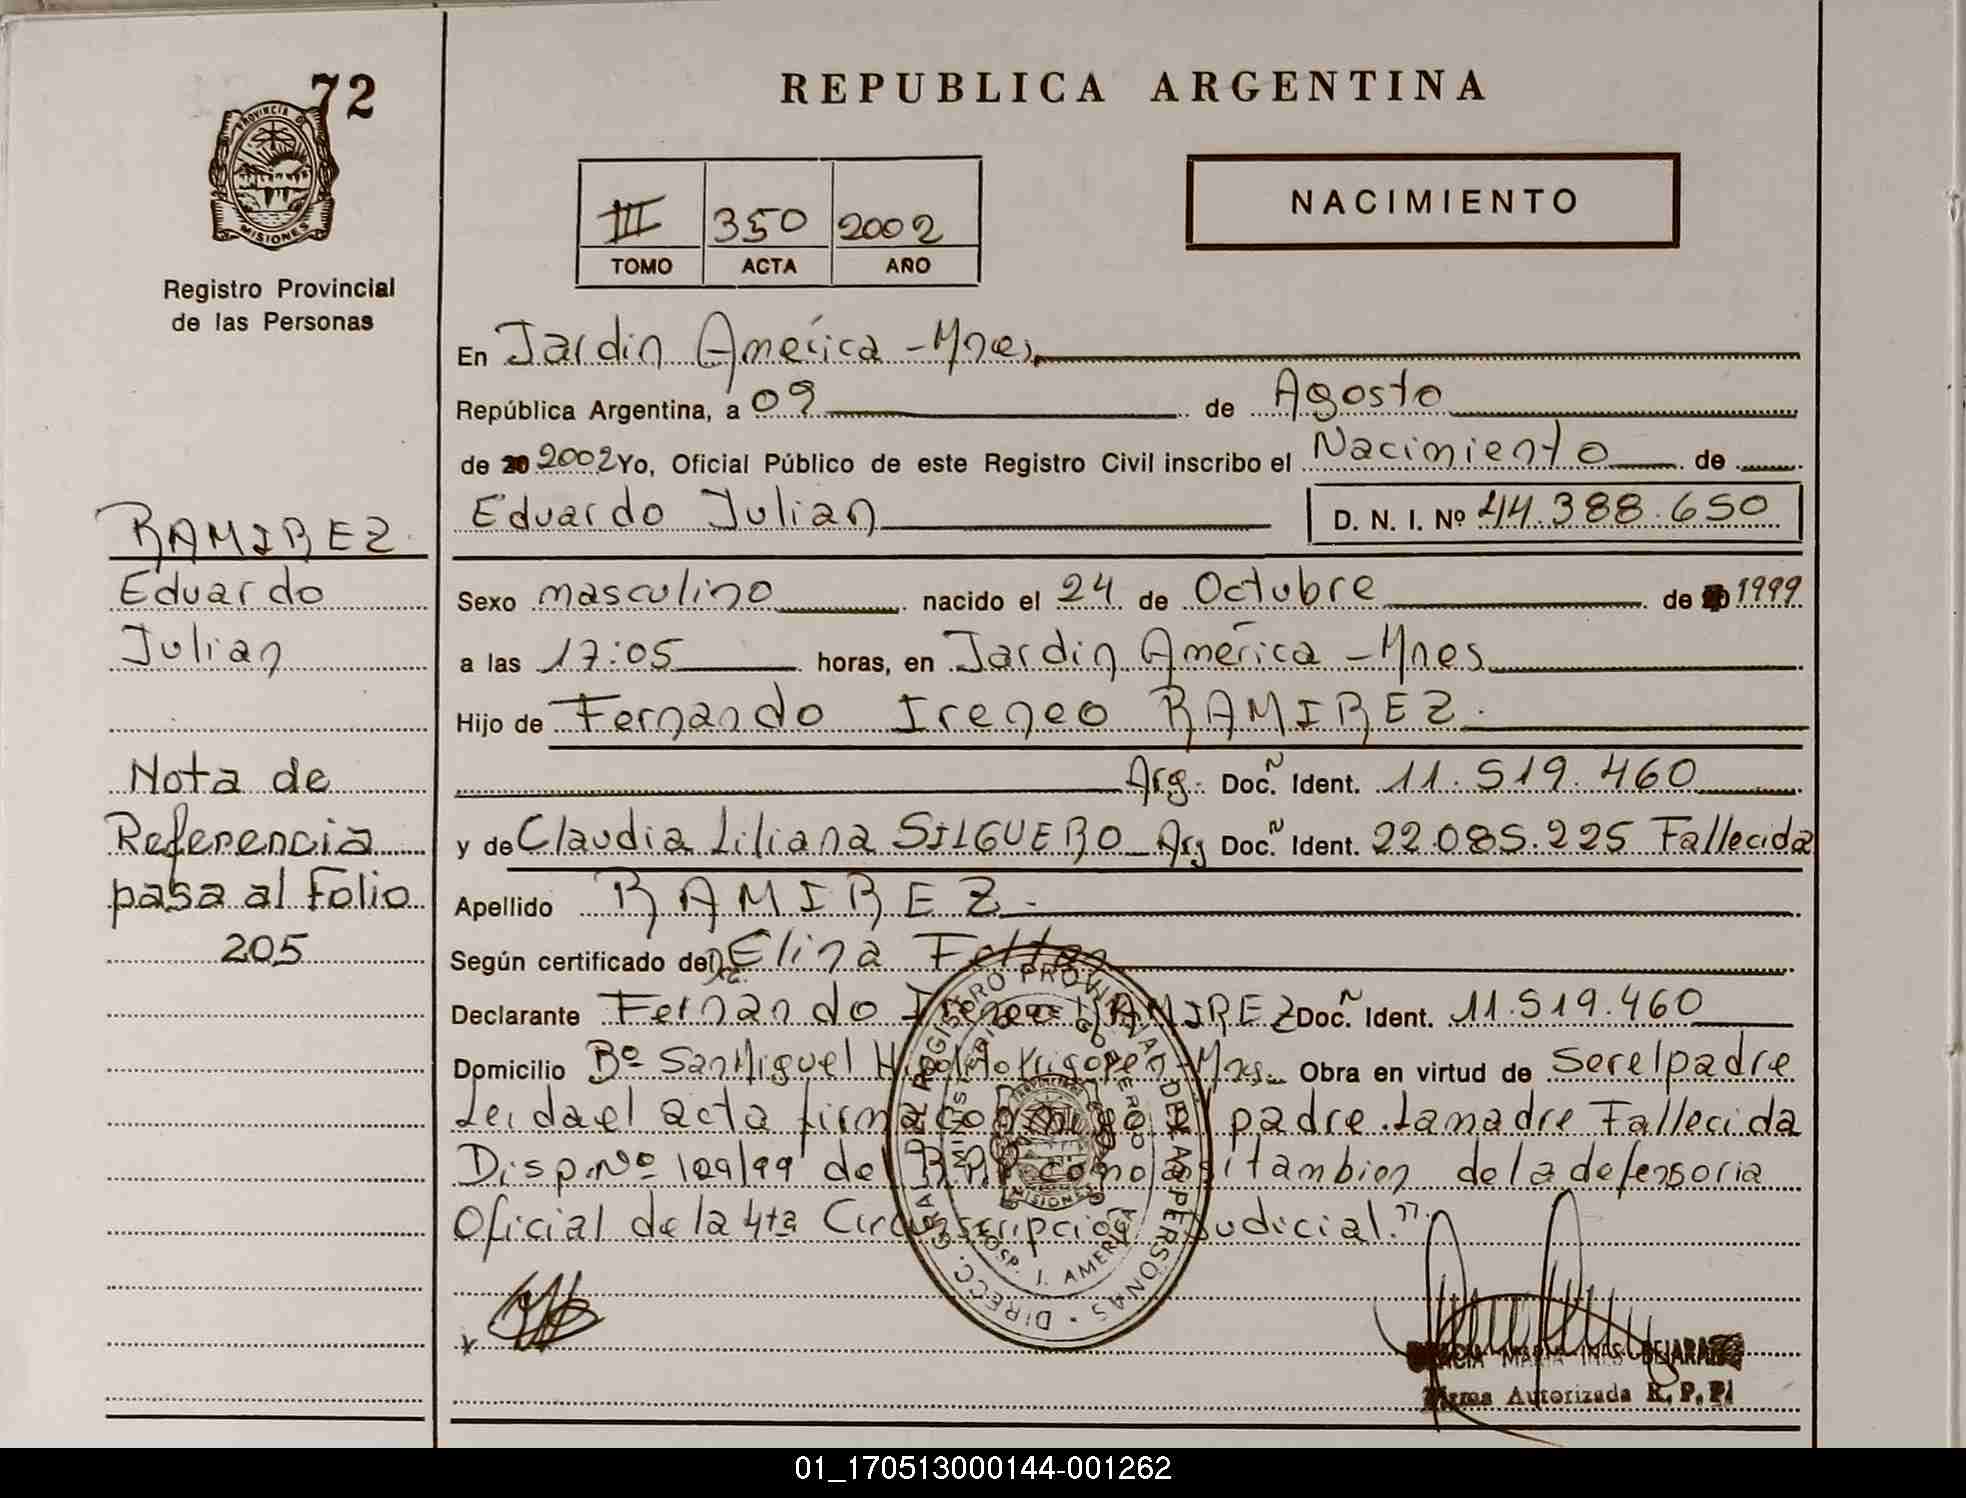 72
PROVINCIA D
MISIONES
Registro Provincial
de las Personas
REPUBLICA ARGENTINA
III 350 2002
TOMO ACTA AÑO
NACIMIENTO
En Jardin América - Mnes
República Argentina, a 09 de Agosto
de 20 2002 Yo, Oficial Público de este Registro Civil inscribo el Nacimiento de
Eduardo Julian D. N. I. Nº 44.388.650
Sexo masculino nacido el 24 de Octubre de 1999
a las 17:05 horas, en Jardin América - Mnes
Hijo de Fernando Ireneo RAMIREZ.
Arg. Doc. Ñ Ident. 11.519.460
y de Claudia Liliana SILGUERO Arg Doc. Ñ Ident. 22.085.225 Fallecida
Apellido RAMIREZ.
Según certificado de Dra. Elina
Declarante Fernando Ireneo RAMIREZ Doc. Ñ Ident. 11.519.460
Domicilio Bº San Miguel Hipolito Yrigoyen - Mnes. Obra en virtud de Ser el padre
Leida el acta firma conmigo el padre. La madre Fallecida
Disp. Nº 109/99 de R.P.P como asi tambien de la defensoria
Oficial de la 4ta Circunscripcion Judicial."
RAMIREZ.
Eduardo
Julian
Nota de
Referencia
pasa al Folio
205
DIRECC. GRAL REGISTRO PROVINCIAL DE LAS PERSONAS
MINISTERIO DE GOBIERNO
MISIONES
HOSP. J. AMERICA
MARIA INES BEJARANO
Firma Autorizada R. P. P.
01_170513000144-001262